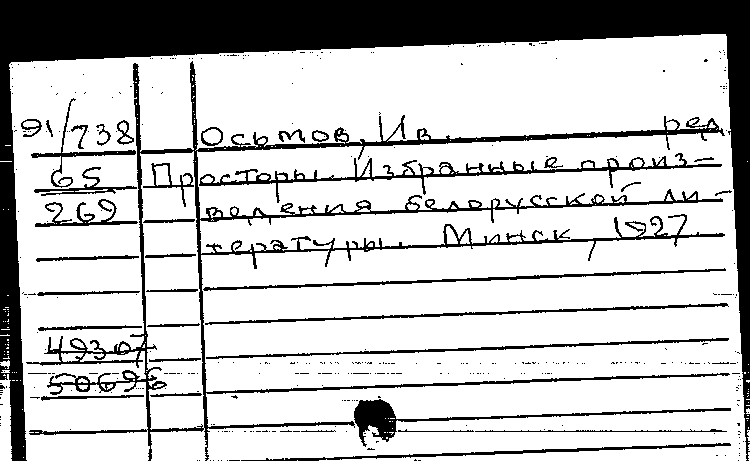 91/738 Осьмов, Ив. ред.
65 Просторы. Избранные произ-
269 ведения белорусской ли-
тературы. Минск, 1927.
49307
50696